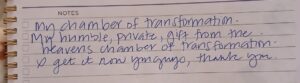 NOTES
my chamber of transformation.
My humble, private, gift from the
heavens chamber of transformation.
I get it now thank you